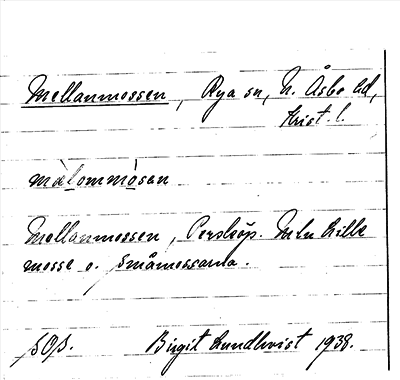 Mellanmossen, Rya sn, N. Åsbo hd,
Krist. l.
mèlommòsen
Mellanmossen, Perstorp. Mln Lille
mosse o. Småmossarna.
SOS. Birgit Lundkvist 1938.